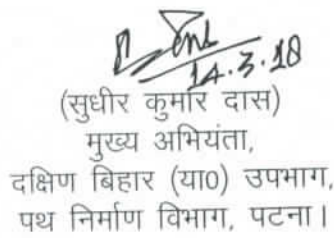 14.3.18
(सुधीर कुमार दास)
मुख्य अभियंता,
दक्षिण बिहार (या0) उपभाग,
पथ निर्माण विभाग, पटना।